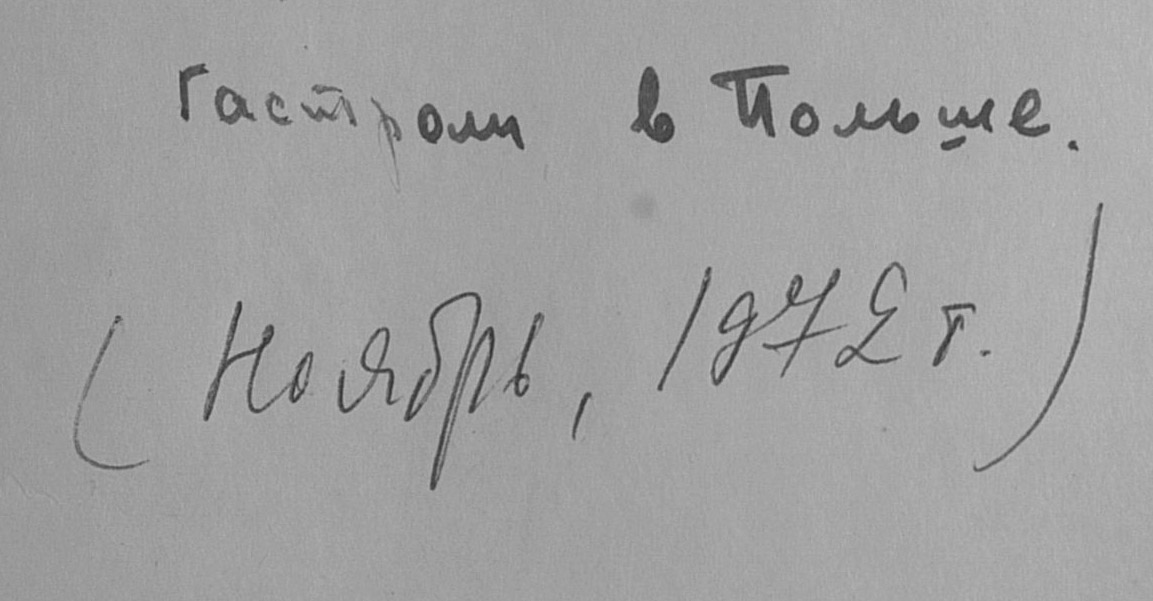 Гастроли в Польше.
(Ноябрь, 1972 г.)